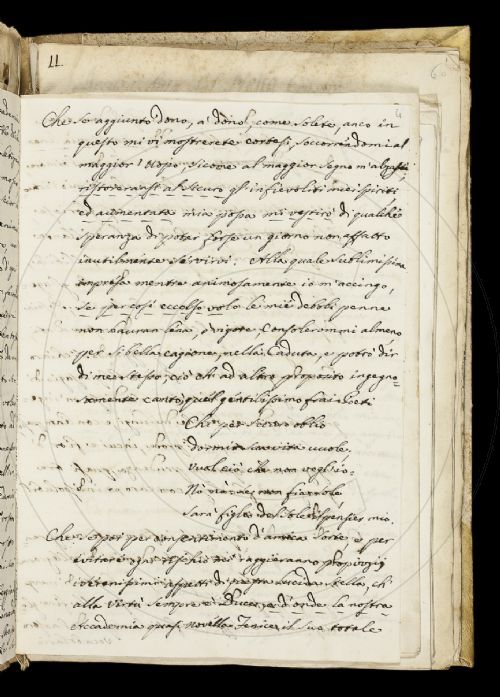 11.
Che se aggiunto dono, à dono, come solete, anco in
questo mi vi mostrerete cortesi, soccorrendomi al
maggior vopo, sicome al maggior segno m'
ristoreransi al sicuro gl' infievoliti miei spiriti
ed aumentata mia possa mi vestirò di qualche
speranza di potar forse un giorno non affatto
inutilmente servirvi. Alla quale sublimissima
impresa mentre animosamente io m'accingo,
se per così eccelso volo le mie debboli penne
non hauran lena, ò vigore, consolerommi almeno
per si bella cagione, nella caduta, e potrò dir
di me stesso, ciò ch' ad altro proposito ingegno=
samente cantò quel gentilissimo frai Poeti
Che per
dormir sua vita vuole,
Vual ciò, che non vogl' io.
Nò nò no; non fia
Sarà figlio del Sole il pensier mio.
Che se poi per consentimento d'amica sorte, e per
propizij
aspetti di Stella, ch'
alla Virtù sempre è Duce, e d'onde la nostra
Accademia quasi novella Fenice il suo totale